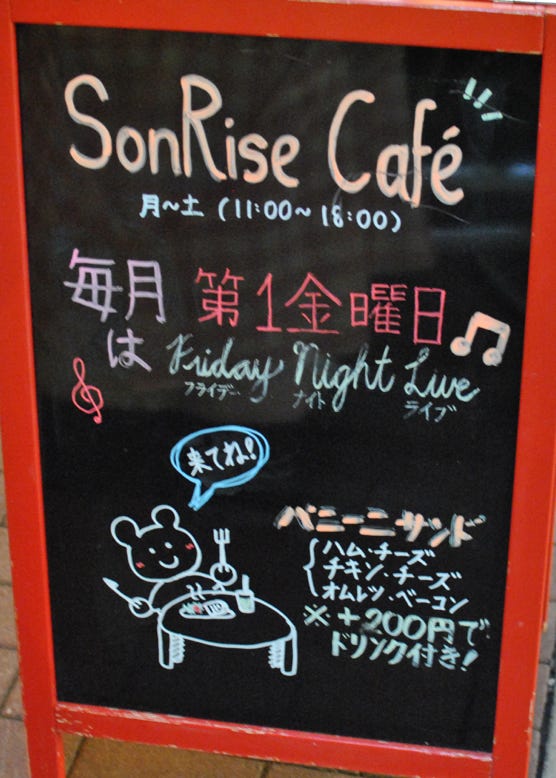 SonRise Café !!
月～土 (11:00～18:00)
毎月 第1金曜日
は Friday Night Live
フライデー ナイト ライブ
来てね!
パニーニサンド
ハム・チーズ
チキン・チーズ
オムレツ・ベーコン
※ +200円で
ドリンク付き!